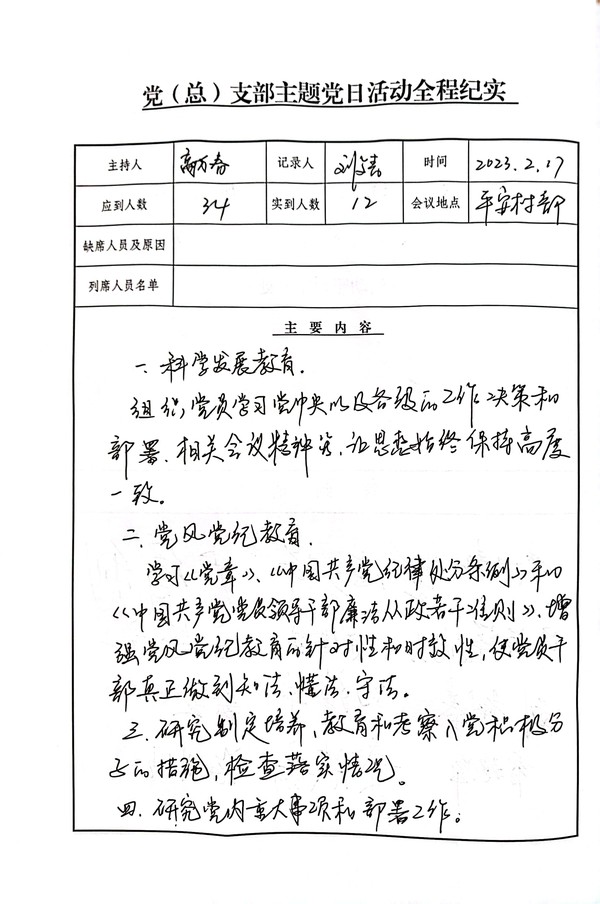 党（总）支部主题党日活动全程纪实
主持人 高万春 记录人 刘 时间 2023.2.17
应到人数 34 实到人数 12 会议地点 平安村部
缺席人员及原因
列席人员名单
主要内容
一、科学发展教育.
组织党员学习党中央以及各级的工作决策和
部署、相关会议精神等,让思想始终保持高度
一致。
二、党风党纪教育.
学习《党章》、《中国共产党纪律处分条例》和
《中国共产党党员领导干部廉洁从政若干准则》、增
强党风党纪教育的针对性和时效性,使党员干
部真正做到知法、懂法、守法。
三、研究制定培养、教育和考察入党积极分
子的措施,检查落实情况。
四、研究党内重大事项和部署工作。